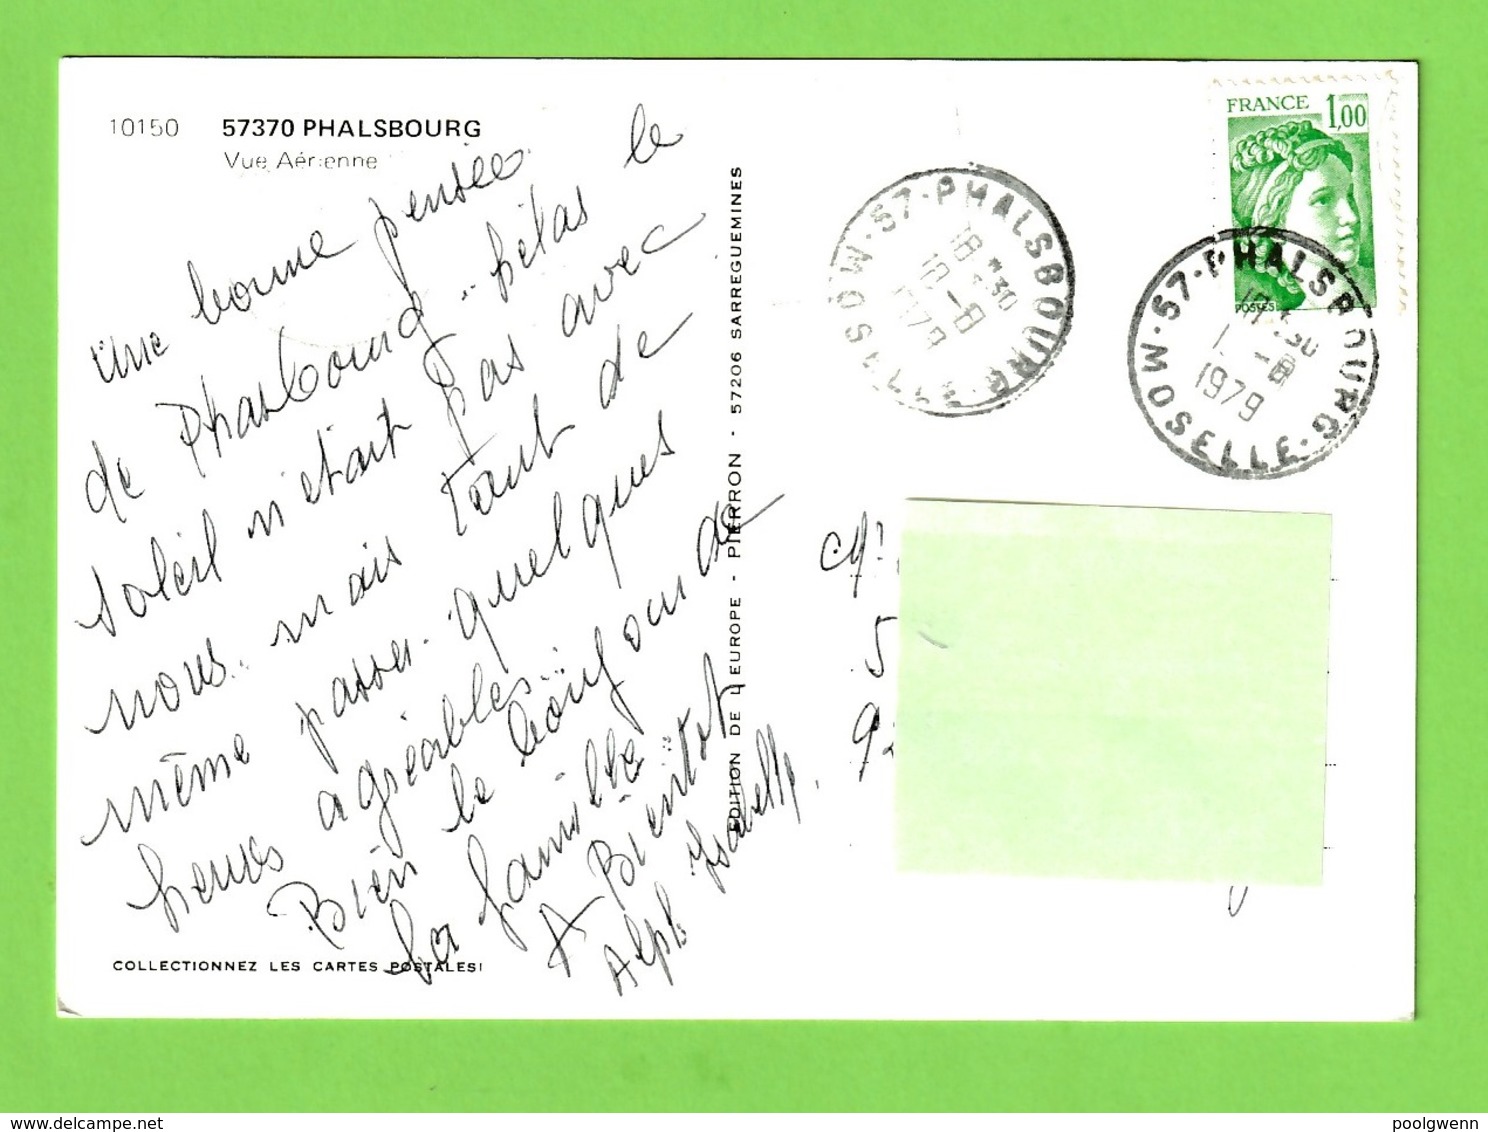 10150 57370 PHALSBOURG
Vue Aérienne
Une bonne pensée
de Phalsbourg - hélas le
soleil n'était pas avec
nous. mais tout de
même passer quelques
heures agréables...
Bien le bonjour de
la famille
A Bientôt
Alph Isabelle.
COLLECTIONNEZ LES CARTES POSTALES!
EDITION DE L'EUROPE - PIERRON - 57206 SARREGUEMINES
FRANCE 1,00
POSTES
57·PHALSBOURG·MOSELLE
18 H 30
10-8
1979
57·PHALSBOURG·MOSELLE
-8
1979
5
poolgwenn